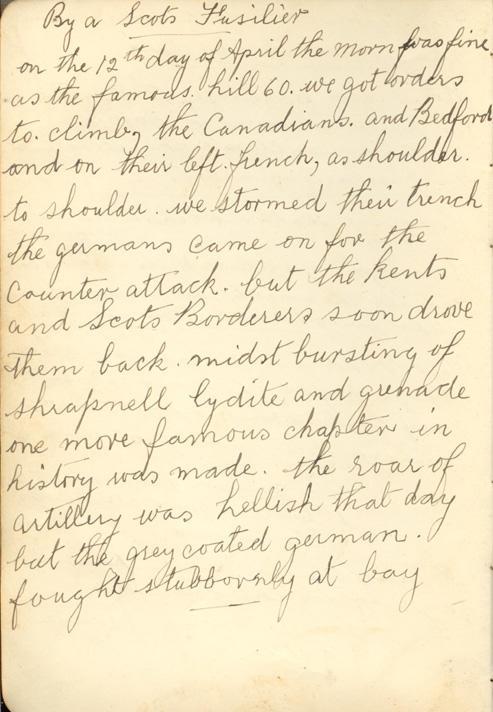 By a Scots Fusilier
on the 12th day of April the morn was fine
as the famous. hill 60. we got orders
to. climb, the Canadians. and Bedford
and on their left. french, as shoulder.
to shoulder. we stormed their trench
the germans came on for the
Counter attack. but the Kents
and Scots Borderers soon drove
them back. midst bursting of
shrapnell lydite and grenade
one more famous chapter in
history was made. the roar of
artillery was hellish that day
but the greycoated german.
fought stubbornly at bay